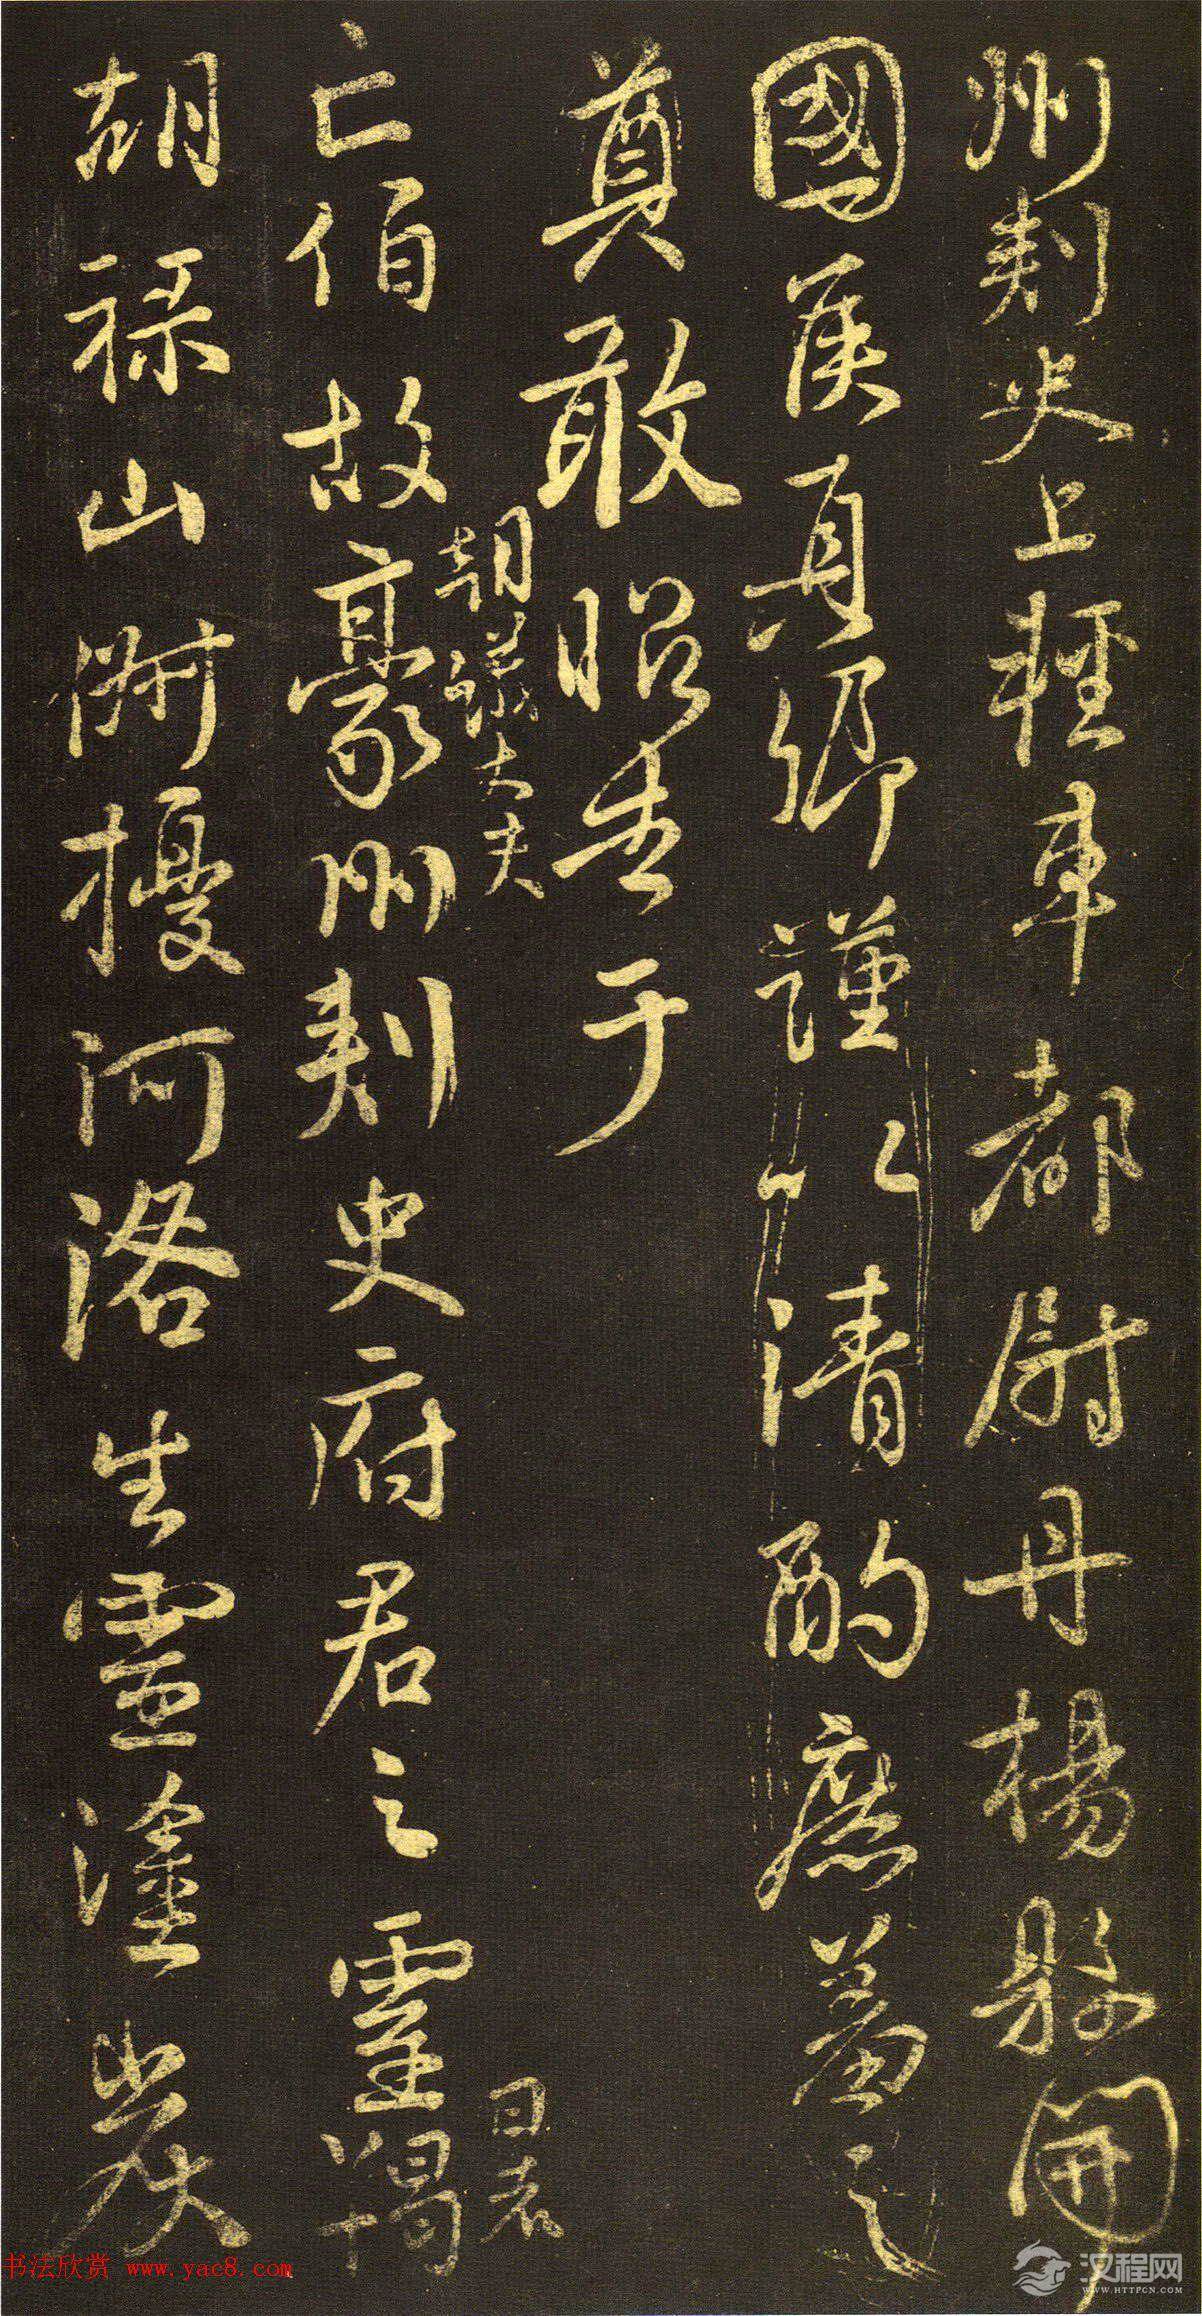 州刺史上輕車都尉丹楊縣開
國侯真卿謹以清酌庶羞之
奠敢昭告于
朝議大夫
日者
亡伯故豪州刺史府君之靈羯
胡祿山俶擾河洛生靈塗炭
书法欣赏 www.yac8.com
汉程网
WWW.HTTPCN.COM